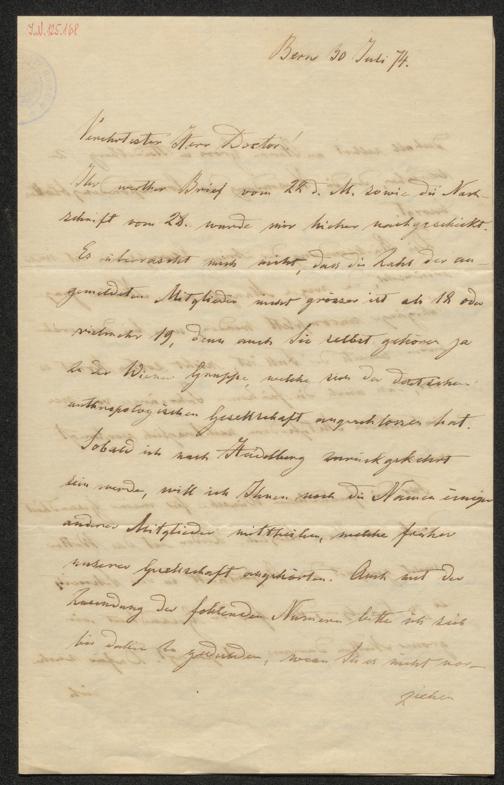 I.N. 125.168
Bern 30 Juli 74.
Verehrtester Herr Doctor!
Ihr werther Brief vom 22 d. M. sowie die Nach-
schrift vom 28. wurde mir hieher nachgeschickt.
Es überrascht mich nicht, dass die Zahl der an-
gemeldeten Mitglieder nicht grösser ist als 18 oder
vielmehr 19, denn auch Sie selbst gehören ja
zu der Wiener Gruppe, welche sich der deutschen
anthropologischen Gesellschaft angeschlossen hat.
Sobald ich nach Heidelberg zurückgekehrt
sein werde, will ich Ihnen noch die Namen einiger
anderer Mitglieder mittheilen, welche früher
unserer Gesellschaft angehörten. Auch mit der
Zusendung der fehlenden Numern bitte ich sich
bis dahin zu gedulden, wenn Sie es nicht vor-
ziehen